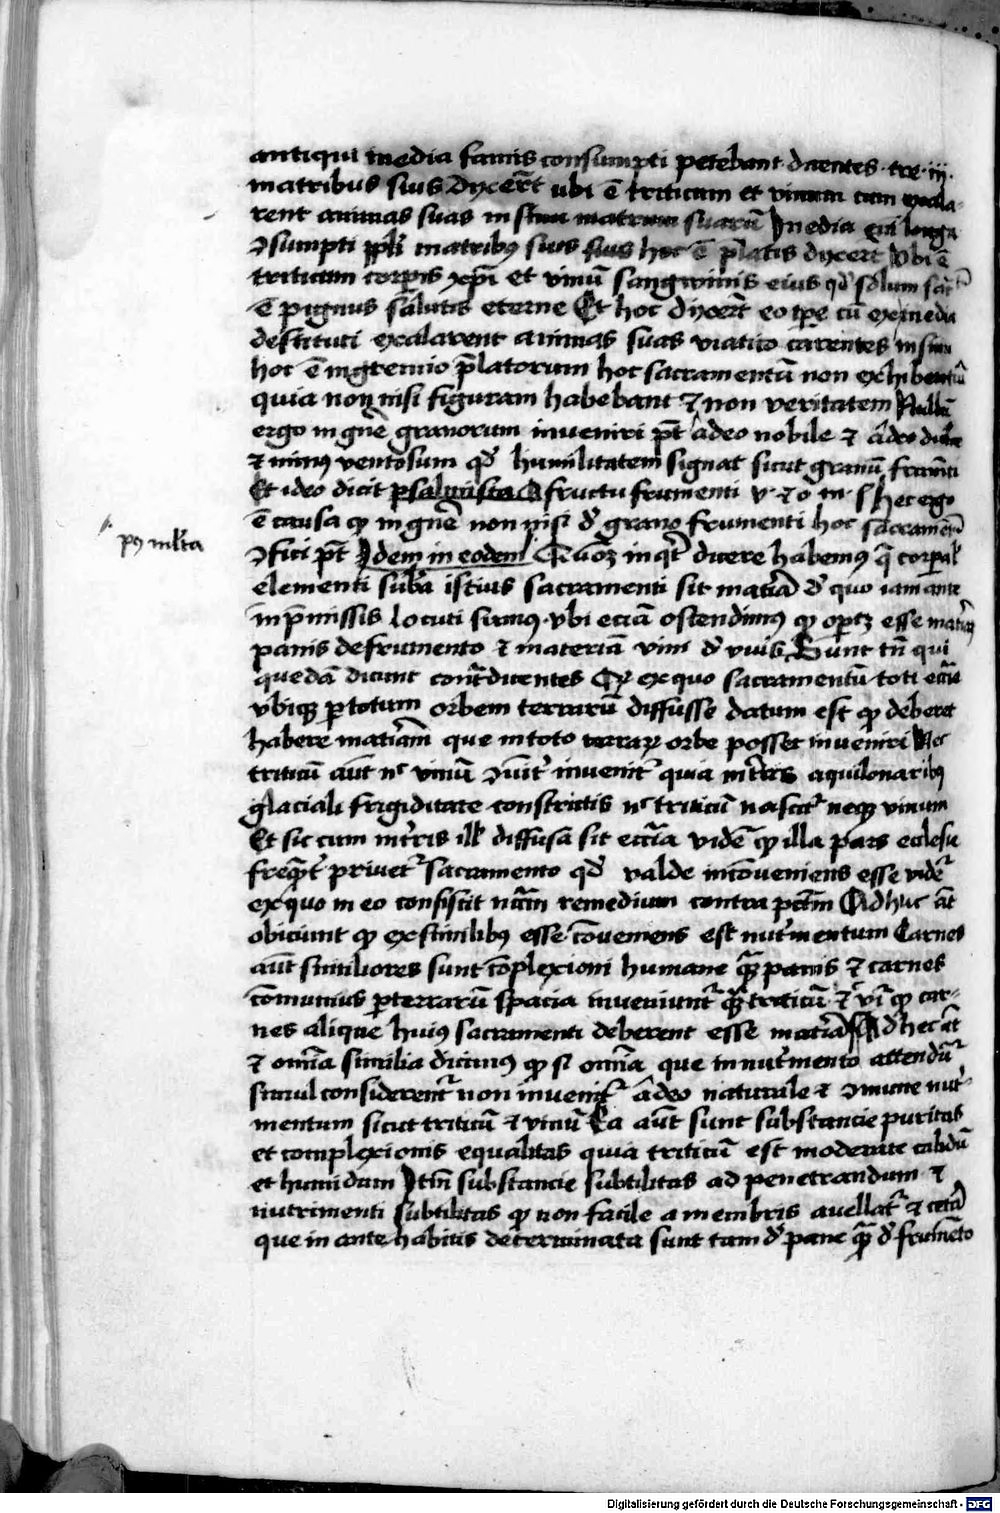 antiqui media famis consumpti petebant dicentes tre iij.
matribus suis dyxer̄t ubi ē triticum et vinum cum exala-
rent animas suas in sinu matrum suarū Inedia eni longa
ɔsumpti ppl̄i matribꝰ suis hoc ē p̄latis dyxer̄t Vbi ē
triticum corpis xp̄i et vinū sangwinis eius qd̄ solum
ē pignus salutis eterne Et hoc dyxer̄t eo tpe cū ex inedia
destituti exalarent animas suas viatico carentes in sinu
hoc ē in gremio p̄latorum hoc sacramentū non exhibentiū
quia non nisi figuram habebant ⁊ non veritatem Nullū
ergo in gn̄e granorum inveniri pt̄ adeo nobile ⁊ adeo dulce
⁊ minꝰ ventosum qd̄ humilitatem signat sicut granū frumēti
Et ideo dicit psalmista A fructu frumenti v ⁊ o m s Hec ergo
ē causa ꝙ in gn̄e non nisi d̄ grano frumenti hoc sacramentū
pꝰ ml̄ta
ɔfici pt̄ Idem in eodem Quoꝝ inqt̄ dicere habemꝰ q̄ corpal
elementi sub̄a istius sacramenti sit matīa d̄ quo iam ante
in p̄missis locuti sumꝰ vbi eciā ostendimꝰ ꝙ oportꝫ esse matīam
panis de frumento ⁊ materiā vini d̄ vuis Sunt tn̄ qui
quedā dicunt contradicentes Qꝛ ex quo sacramentū toti eccīe
vbiqꝫ p totum orbem terrarū diffusse datum est ꝙ deberet
habere matīam que in toto terraꝝ orbe posset inveniri Nec
triticū aūt nc̄ vinū ɔuīt invenīt quia in tr̄is aquilonaribꝰ
glaciali frigiditate constrictis nc̄ triticū nascit᷑ neqꝫ vinum
Et sic cum in tr̄is ill̄ diffusa sit eccīa vidēt ꝙ illa pars ecclesie
freqn̄t̄ privet᷑ sacramento qd̄ valde inconveniens esse vidēt
ex quo in eo consistit nr̄m remedium contra pctm̄ Adhuc āt
obiciunt ꝙ ex similibꝰ esse conveniens est nut̄mentum Carnes
aūt similiores sunt cōplexioni humane qꝫ panis ⁊ carnes
cōmunius p terrarū spacia inveniunt᷑ qꝫ triticū ⁊ ꝙ car-
nes alique huiꝰ sacramenti deberent esse matīa Ad hec āt
⁊ om̄ia similia dicimꝰ ꝙ si om̄ia que in nut̄mento attendūt᷑
simul considerent᷑ non invenit᷑ adeo naturale ⁊ ɔmune nut̄-
mentum sicut triticū ⁊ vinū Ea aūt sunt substancie puritas
et complexionis equalitas quia triticū est moderate calidū
et humidum Itm̄ substancie subtilitas ad penetrandum ⁊
nutrimenti subtilitas ꝙ non facile a membris auellat᷑ ⁊ cetā
que in ante habitis determinata sunt tam d̄ pane qꝫ d̄ frumēto
Digitalisierung gefördert durch die Deutsche Forschungsgemeinschaft - DFG